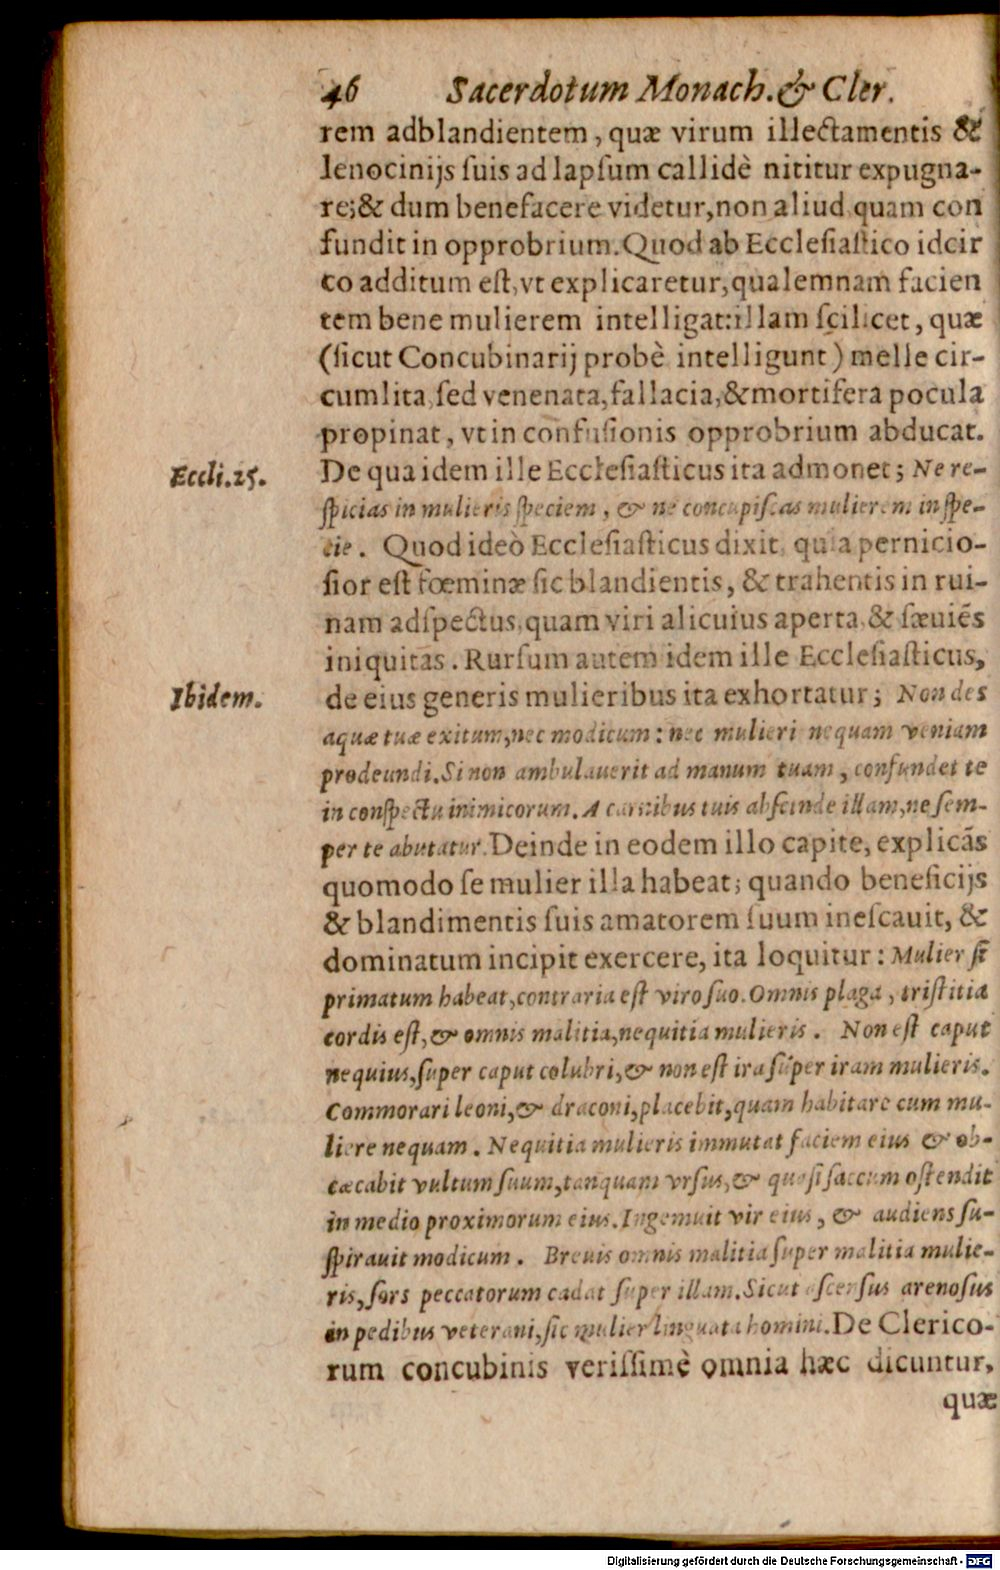 46 Sacerdotum Monach. & Cler.
rem adblandientem, quæ virum illectamentis &
lenocinijs ſuis ad lapſum callidè nititur expugna-
re; & dum benefacere videtur, non aliud quam con
fundit in opprobrium. Quod ab Eccleſiaſtico idcir
co additum eſt, vt explicaretur, qualemnam facien
tem bene mulierem intelligat: illam ſcilicet, quæ
(ſicut Concubinarij probè intelligunt) melle cir-
cumlita, ſed venenata, fallacia, & mortifera pocula
propinat, vt in confuſionis opprobrium abducat.
Eccli. 25. De qua idem ille Eccleſiaſticus ita admonet; Ne re-
ſpicias in mulieris ſpeciem, & ne concupiſcas mulierem in ſpe-
cie. Quod ideò Eccleſiaſticus dixit, quia pernicio-
ſior eſt fœminæ ſic blandientis, & trahentis in rui-
nam adſpectus, quam viri alicuius aperta, & ſæuiẽs
iniquitas. Rurſum autem idem ille Eccleſiaſticus,
Ibidem. de eius generis mulieribus ita exhortatur; Non des
aquæ tuæ exitum, nec modicum: nec mulieri nequam veniam
prodeundi. Si non ambulauerit ad manum tuam, confundet te
in conſpectu inimicorum. A carnibus tuis abſcinde illam, ne ſem-
per te abutatur. Deinde in eodem illo capite, explicãs
quomodo ſe mulier illa habeat; quando beneficijs
& blandimentis ſuis amatorem ſuum ineſcauit, &
dominatum incipit exercere, ita loquitur: Mulier ſi
primatum habeat, contraria eſt viro ſuo. Omnis plaga, triſtitia
cordis eſt, & omnis malitia, nequitia mulieris. Non eſt caput
nequius, ſuper caput colubri, & non eſt ira ſuper iram mulieris.
Commorari leoni, & draconi, placebit, quam habitare cum mu-
liere nequam. Nequitia mulieris immutat faciem eius & ob-
cæcabit vultum ſuum, tanquam vrſus, & quaſi ſaccum oſtendit
in medio proximorum eius. Ingemuit vir eius, & audiens ſu-
ſpirauit modicum. Breuis omnis malitia ſuper malitia mulie-
ris, ſors peccatorum cadat ſuper illam. Sicut aſcenſus arenoſus
in pedibus veterani, ſic mulier linguata homini. De Clerico-
rum concubinis veriſſimè omnia hæc dicuntur,
quæ
Digitalisierung gefördert durch die Deutsche Forschungsgemeinschaft - DFG